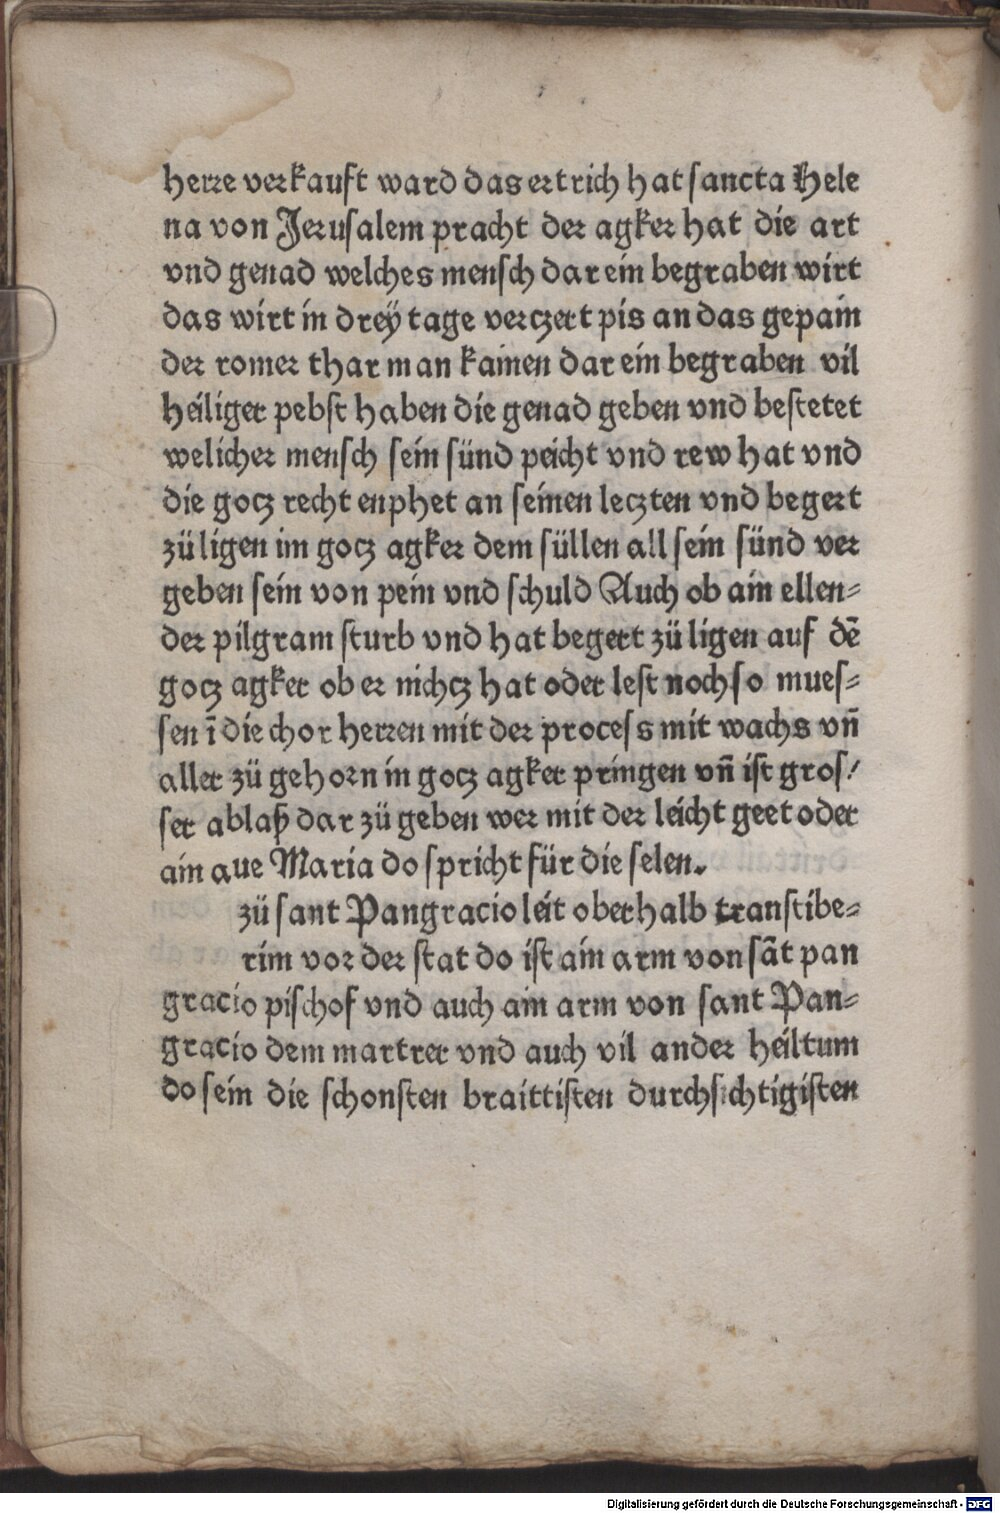 herre verkauft ward das ertrich hat sancta Hele
na von Jerusalem pracht der agker hat die art
vnd genad welches mensch dar ein begraben wirt
das wirt in dreÿ tage verczert pis an das gepain
der romer thar man kainen dar ein begraben vil
heiliger pebst haben die genad geben vnd bestetet
welicher mensch sein sünd peicht vnd rew hat vnd
die gocz recht enphet an seinen leczten vnd begert
zü ligen im gocz agker dem süllen all sein sünd ver
geben sein von pein vnd schuld Auch ob ain ellen⸗
der pilgram sturb vnd hat begert zü ligen auf dē
gocz agker ob er nichcz hat oder lest noch so mues⸗
sen ī die chor herren mit der process mit wachs vn̄
aller zü gehorn in gocz agker pringen vn̄ ist gros/
ser ablaß dar zü geben wer mit der leicht geet oder
ain aue Maria do spricht für die selen.
zü sant Pangracio leit oberhalb transtibe⸗
rim vor der stat do ist ain arm von sāt pan
gracio pischof vnd auch ain arm von sant Pan⸗
gracio dem martrer vnd auch vil ander heiltum
do sein die schonsten braittisten durchsichtigisten
Digitalisierung gefördert durch die Deutsche Forschungsgemeinschaft - DFG